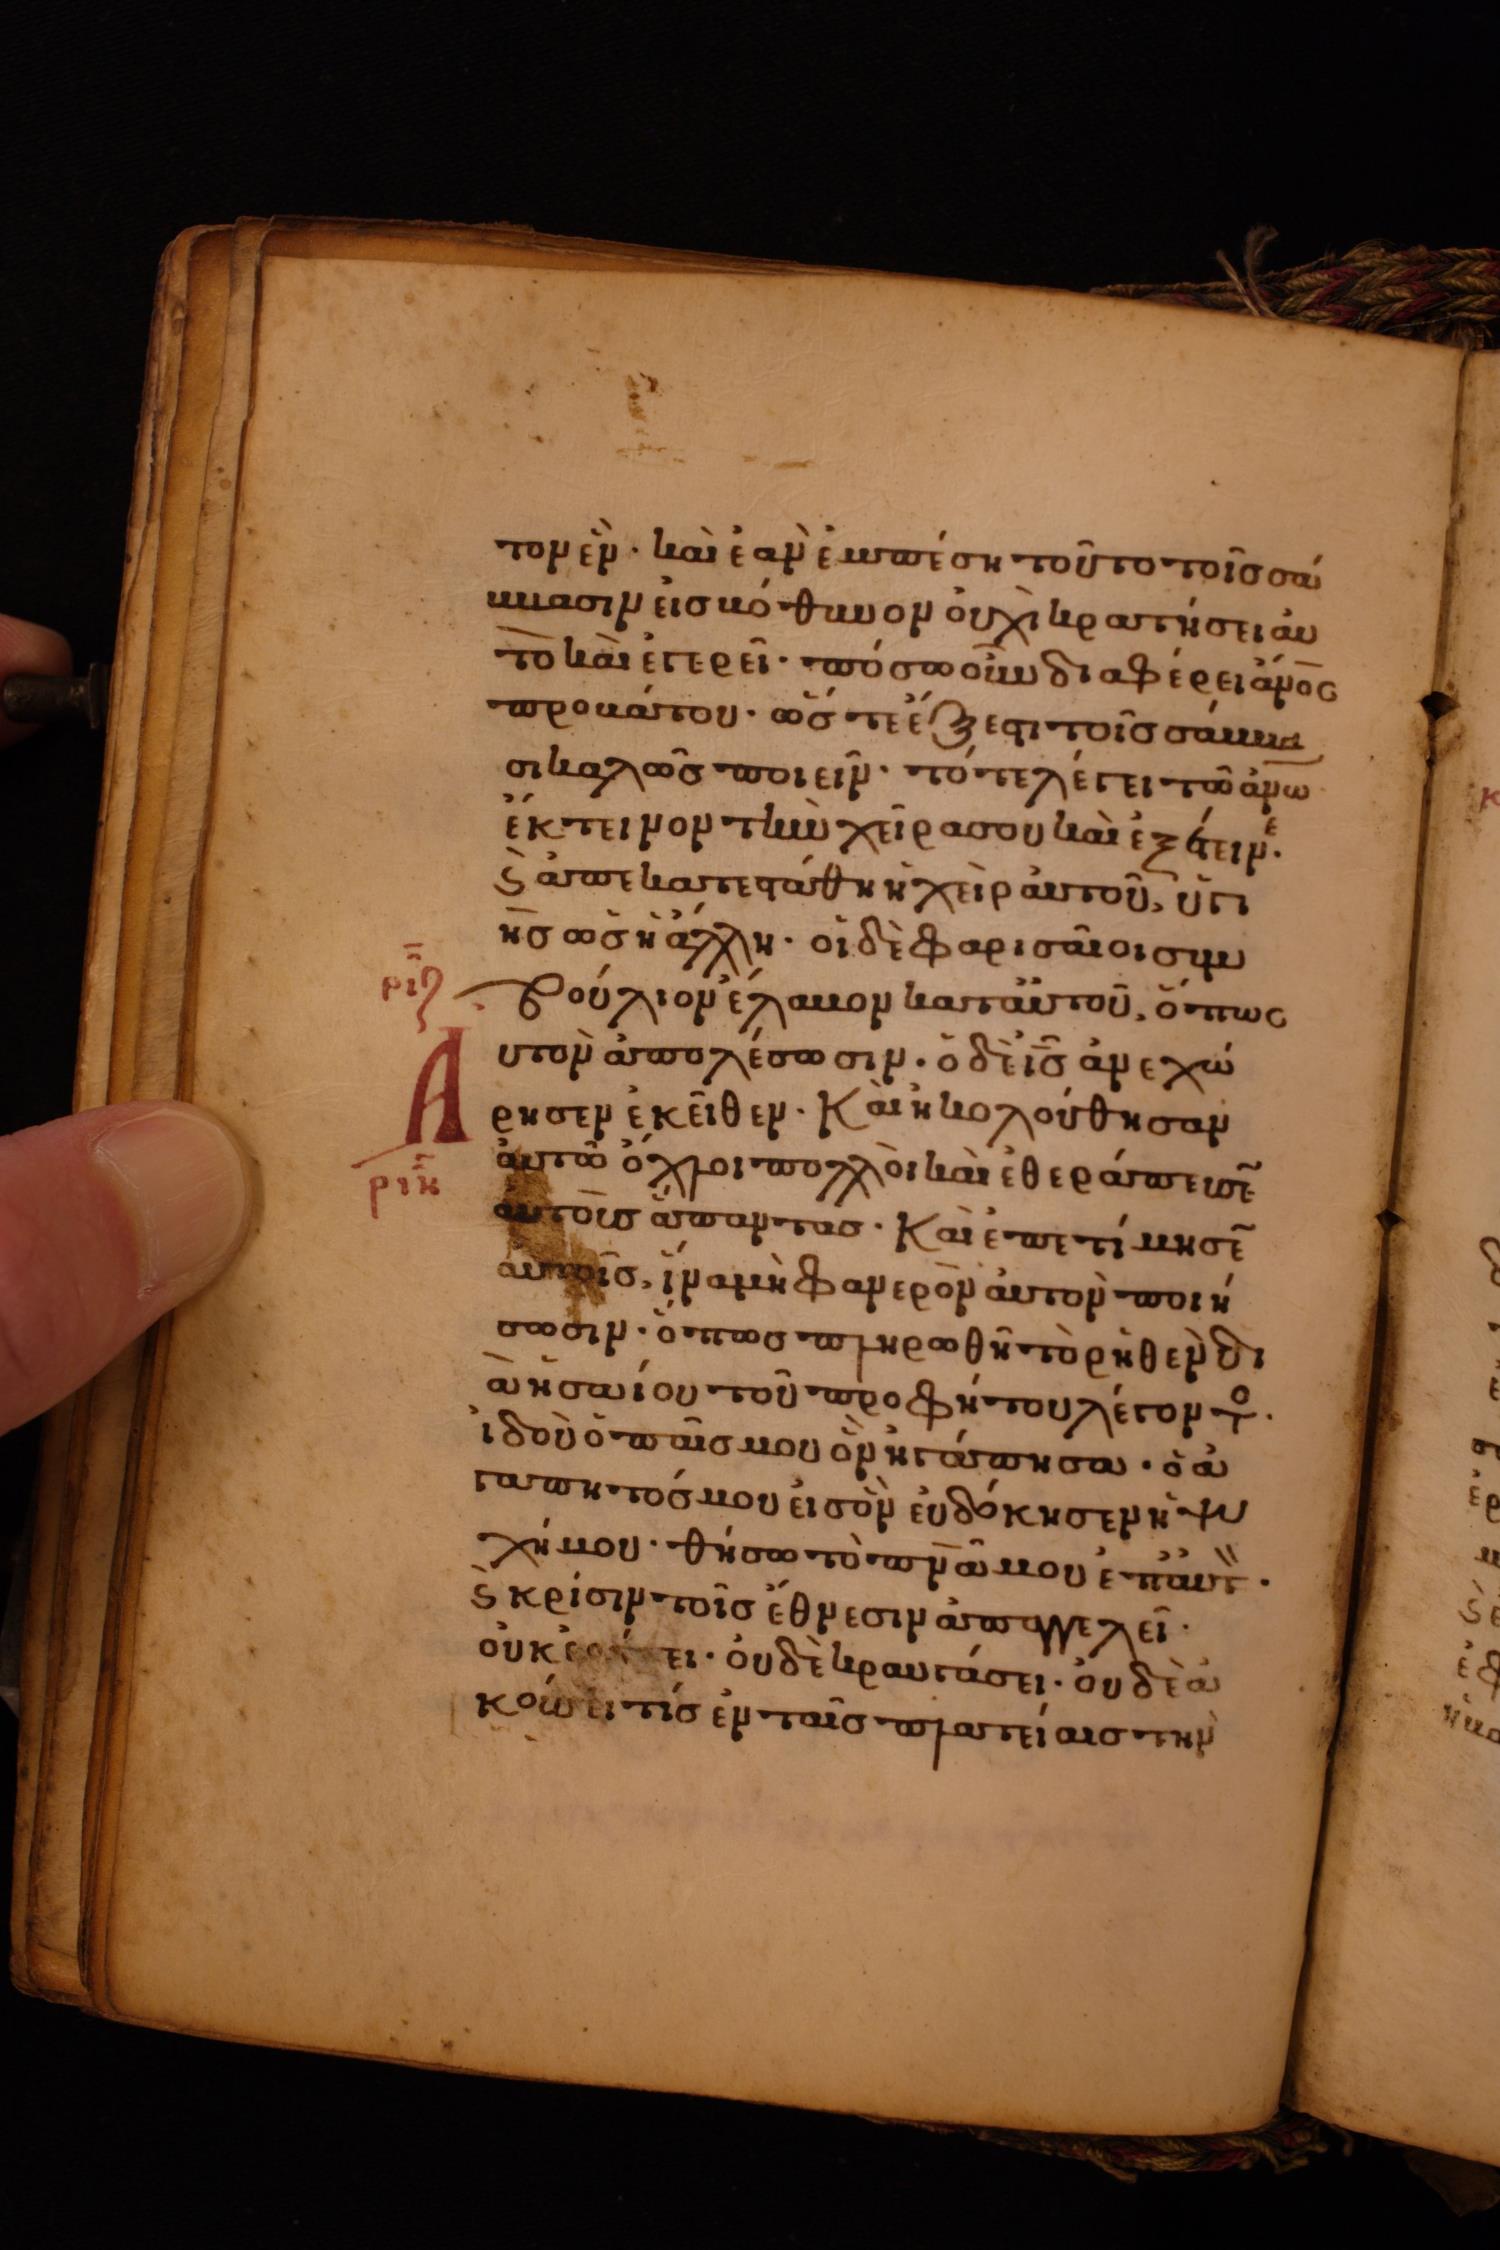 τον ἓν· καὶ ἐὰν ἐμπέση τοῦτο τοῖς σά
ββασιν εἰς βόθυνον οὐχὶ κρατήσει αὐ
τὸ καὶ ἐγερεῖ· πόσω οὖν διαφέρει ἄνος
προβάτου· ὥς τε ἔξεστι τοῖς σάββα
σι καλῶς ποιεῖν· τότε λέγει τῶ ἀνω
ἔκτεινον τὴν χεῖρα σου καὶ ἐξέτεινε·
ϛ ἀπεκατεστάθη ἡ χεὶρ αὐτοῦ, ὑγι
ὴς ὡς ἡ ἄλλη· οἱ δὲ φαρισαῖοι συμ
ριζ βούλιον ἔλαβον κατ' αὐτοῦ, ὅπως
Α υτὸν ἀπολέσωσιν· ὁ δὲ ις ἀνεχώ
ρησεν ἐκεῖθεν· Καὶ ἠκολούθησαν
ριη αὐτῶ ὄχλοι πολλοὶ καὶ ἐθεράπευσε
αὐτοὺς ἅπαντας· Καὶ ἐπετίμησε
αὐτοῖς, ἵνα μὴ φανερὸν αὐτὸν ποιή
σωσιν· ὅπως πληρωθῆ τὸ ρηθὲν δι
ὰ ἡσαΐου τοῦ προφήτου λέγοντο·
ἰδοὺ ὁ παῖς μου ὃν ἠγάπησα· ὁ ἀ
γαπητός μου εἰς ὃν εὐδόκησεν ἡ ψυ
χή μου· θήσω τὸ πνᾶ μου ἐπ' αὐτ·
ϛ κρίσιν τοῖς ἔθνεσιν ἀπαγγελεῖ·
οὐκ ἐρίσει· οὐδὲ κραυγάσει· οὐδὲ ἀ
κούσει τίς ἐν ταῖς πλατείαις τὴν